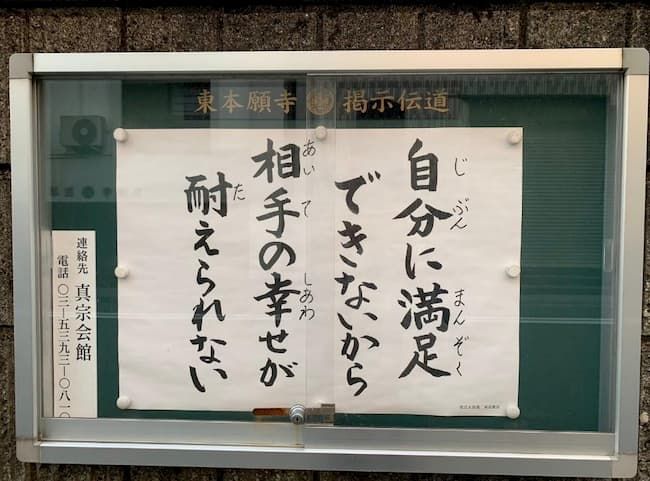 東本願寺 掲示伝道
自分に満足
じ ぶん まん ぞく
できないから
相手の幸せが
あい て しあわ
耐えられない
た
連絡先 真宗会館
電話 〇三―五三九三―〇八一〇